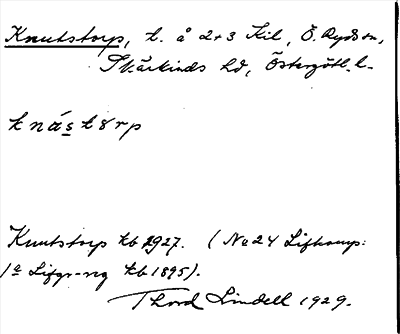 Knutstorp, t. å 2+3 Kil, Ö. Ryds sn,
Skärkinds hd, Östergötl. l.
knástòrp
Knutstorp kb 1927. (No 24 Lifkomp:
1a Lifgr-reg kb 1895).
Thord Lindell 1929.